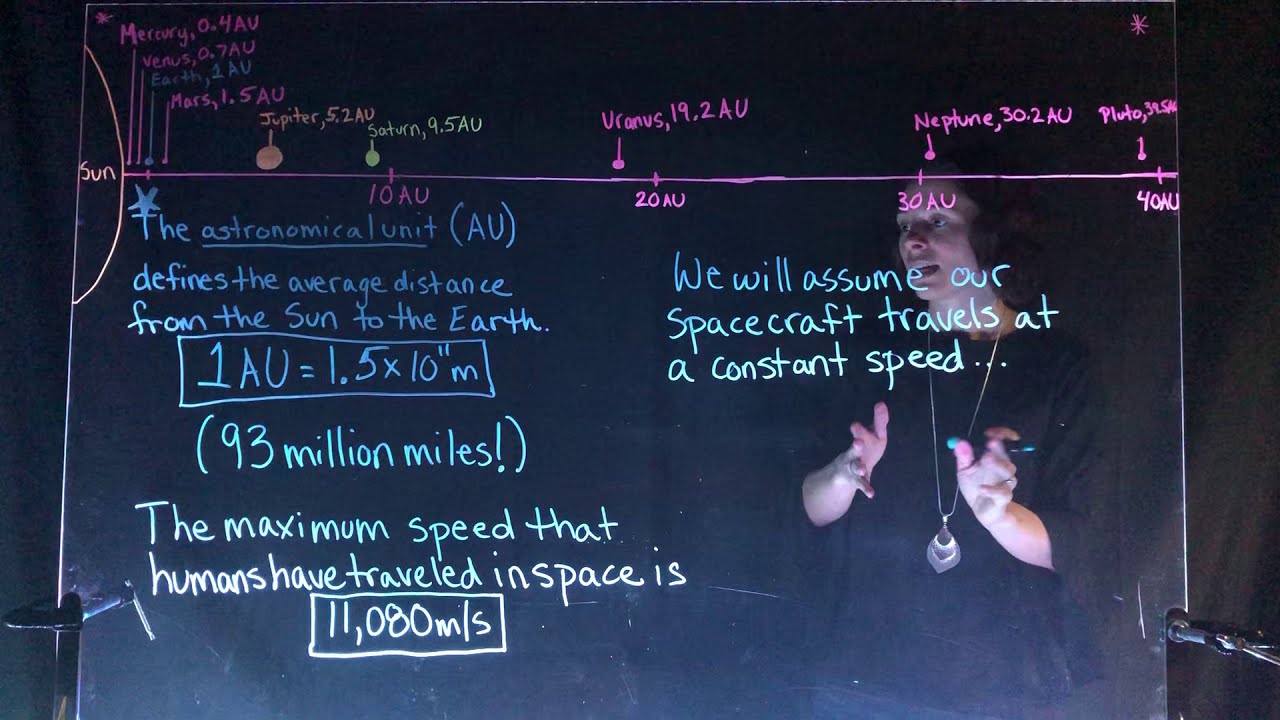 Mercury, 0.4 AU
Venus, 0.7 AU
Earth, 1 AU
Mars, 1.5 AU
Jupiter, 5.2 AU
Saturn, 9.5 AU
Uranus, 19.2 AU
Neptune, 30.2 AU
Pluto, 39.5 AU
Sun
10 AU
20 AU
30 AU
40 AU
The astronomical unit (AU)
defines the average distance
from the Sun to the Earth.
1 AU = 1.5 × 10¹¹ m
(93 million miles!)
The maximum speed that
humans have traveled in space is
11,080 m/s
We will assume our
spacecraft travels at
a constant speed...